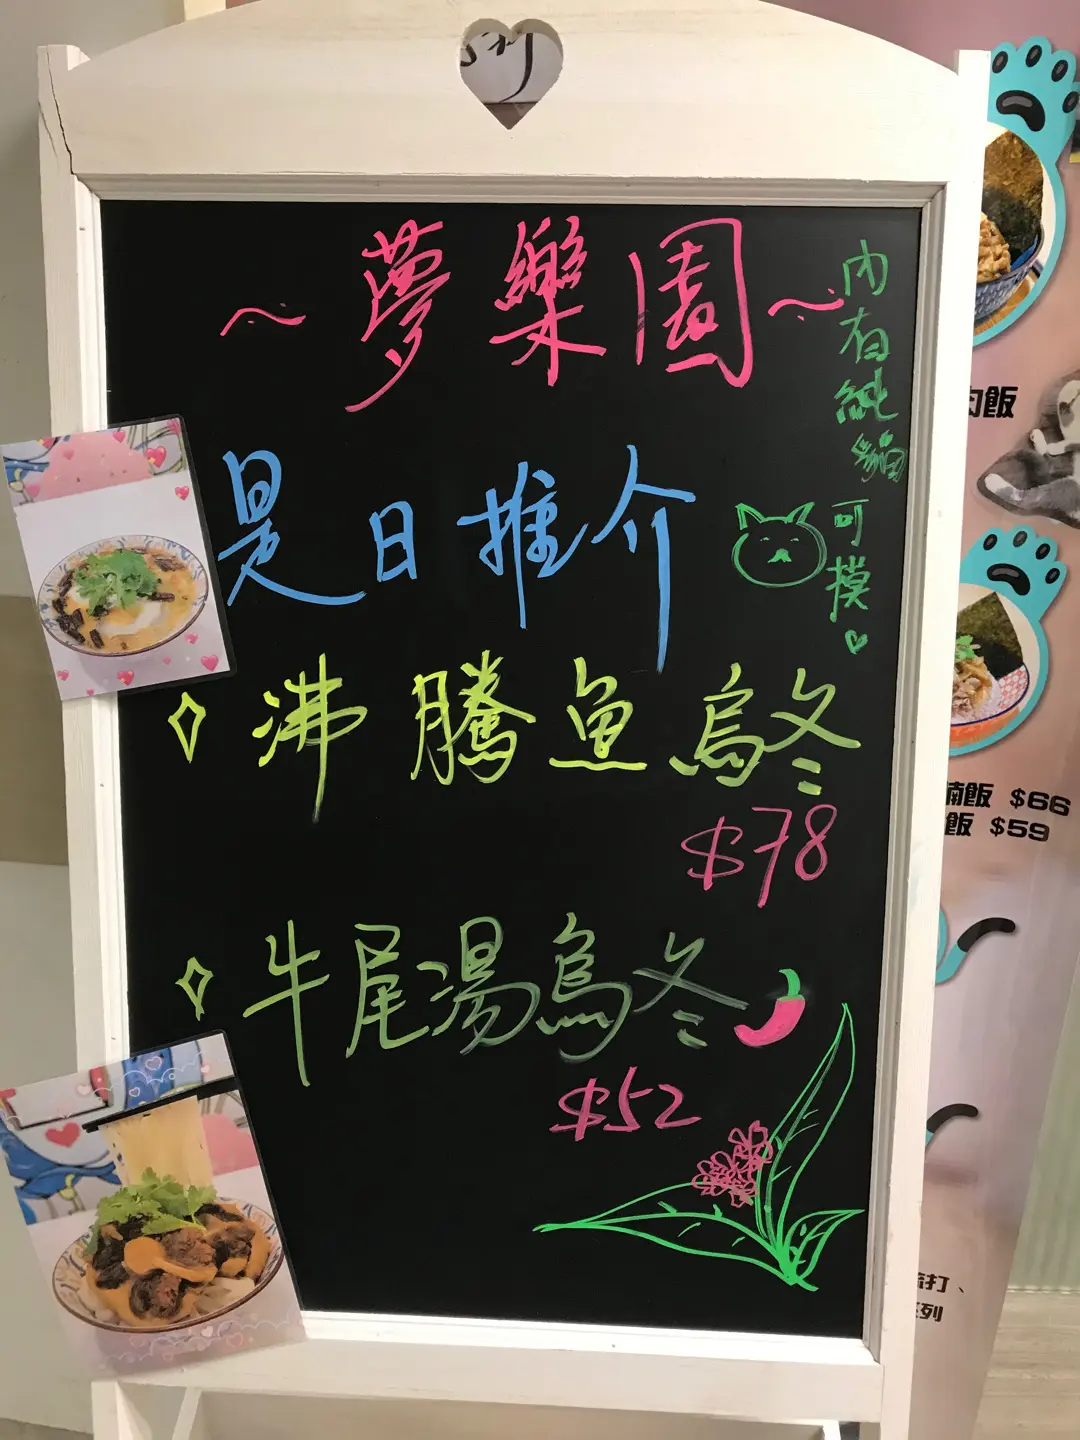 ~夢樂園~
內有純貓可摸
是日推介
沸騰魚烏冬
$78
牛尾湯烏冬
$52
飯
飯 $66
飯 $59
打、
列